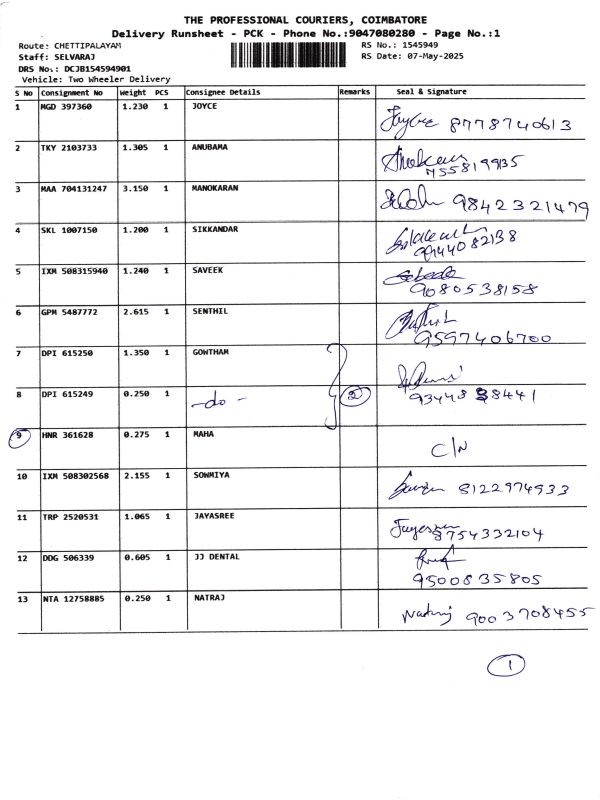 THE PROFESSIONAL COURIERS, COIMBATORE
Delivery Runsheet - PCK - Phone No.:9047080280 - Page No.:1
Route: CHETTIPALAYAM RS No.: 1545949
Staff: SELVARAJ RS Date: 07-May-2025
DRS No.: DCJB154594901
Vehicle: Two Wheeler Delivery
S No Consignment No Weight PCS Consignee Details Remarks Seal & Signature
1 MGD 397360 1.230 1 JOYCE
Joyce 8778740613
2 TKY 2103733 1.305 1 ANUBAMA
755819935
3 MAA 704131247 3.150 1 MANOKARAN
9842321479
4 SKL 1007150 1.200 1 SIKKANDAR
9944082138
5 IXM 508315940 1.240 1 SAVEEK
9080538158
6 GPM 5487772 2.615 1 SENTHIL
9597406700
7 DPI 615250 1.350 1 GOWTHAM
8 DPI 615249 0.250 1 -do- 2 9344838441
9 HNR 361628 0.275 1 MAHA
C/N
10 IXM 508302568 2.155 1 SOWMIYA
8122974933
11 TRP 2520531 1.065 1 JAYASREE
8754332104
12 DDG 506339 0.605 1 JJ DENTAL
9500835805
13 NTA 12758885 0.250 1 NATRAJ
Natraj 9003708455
1